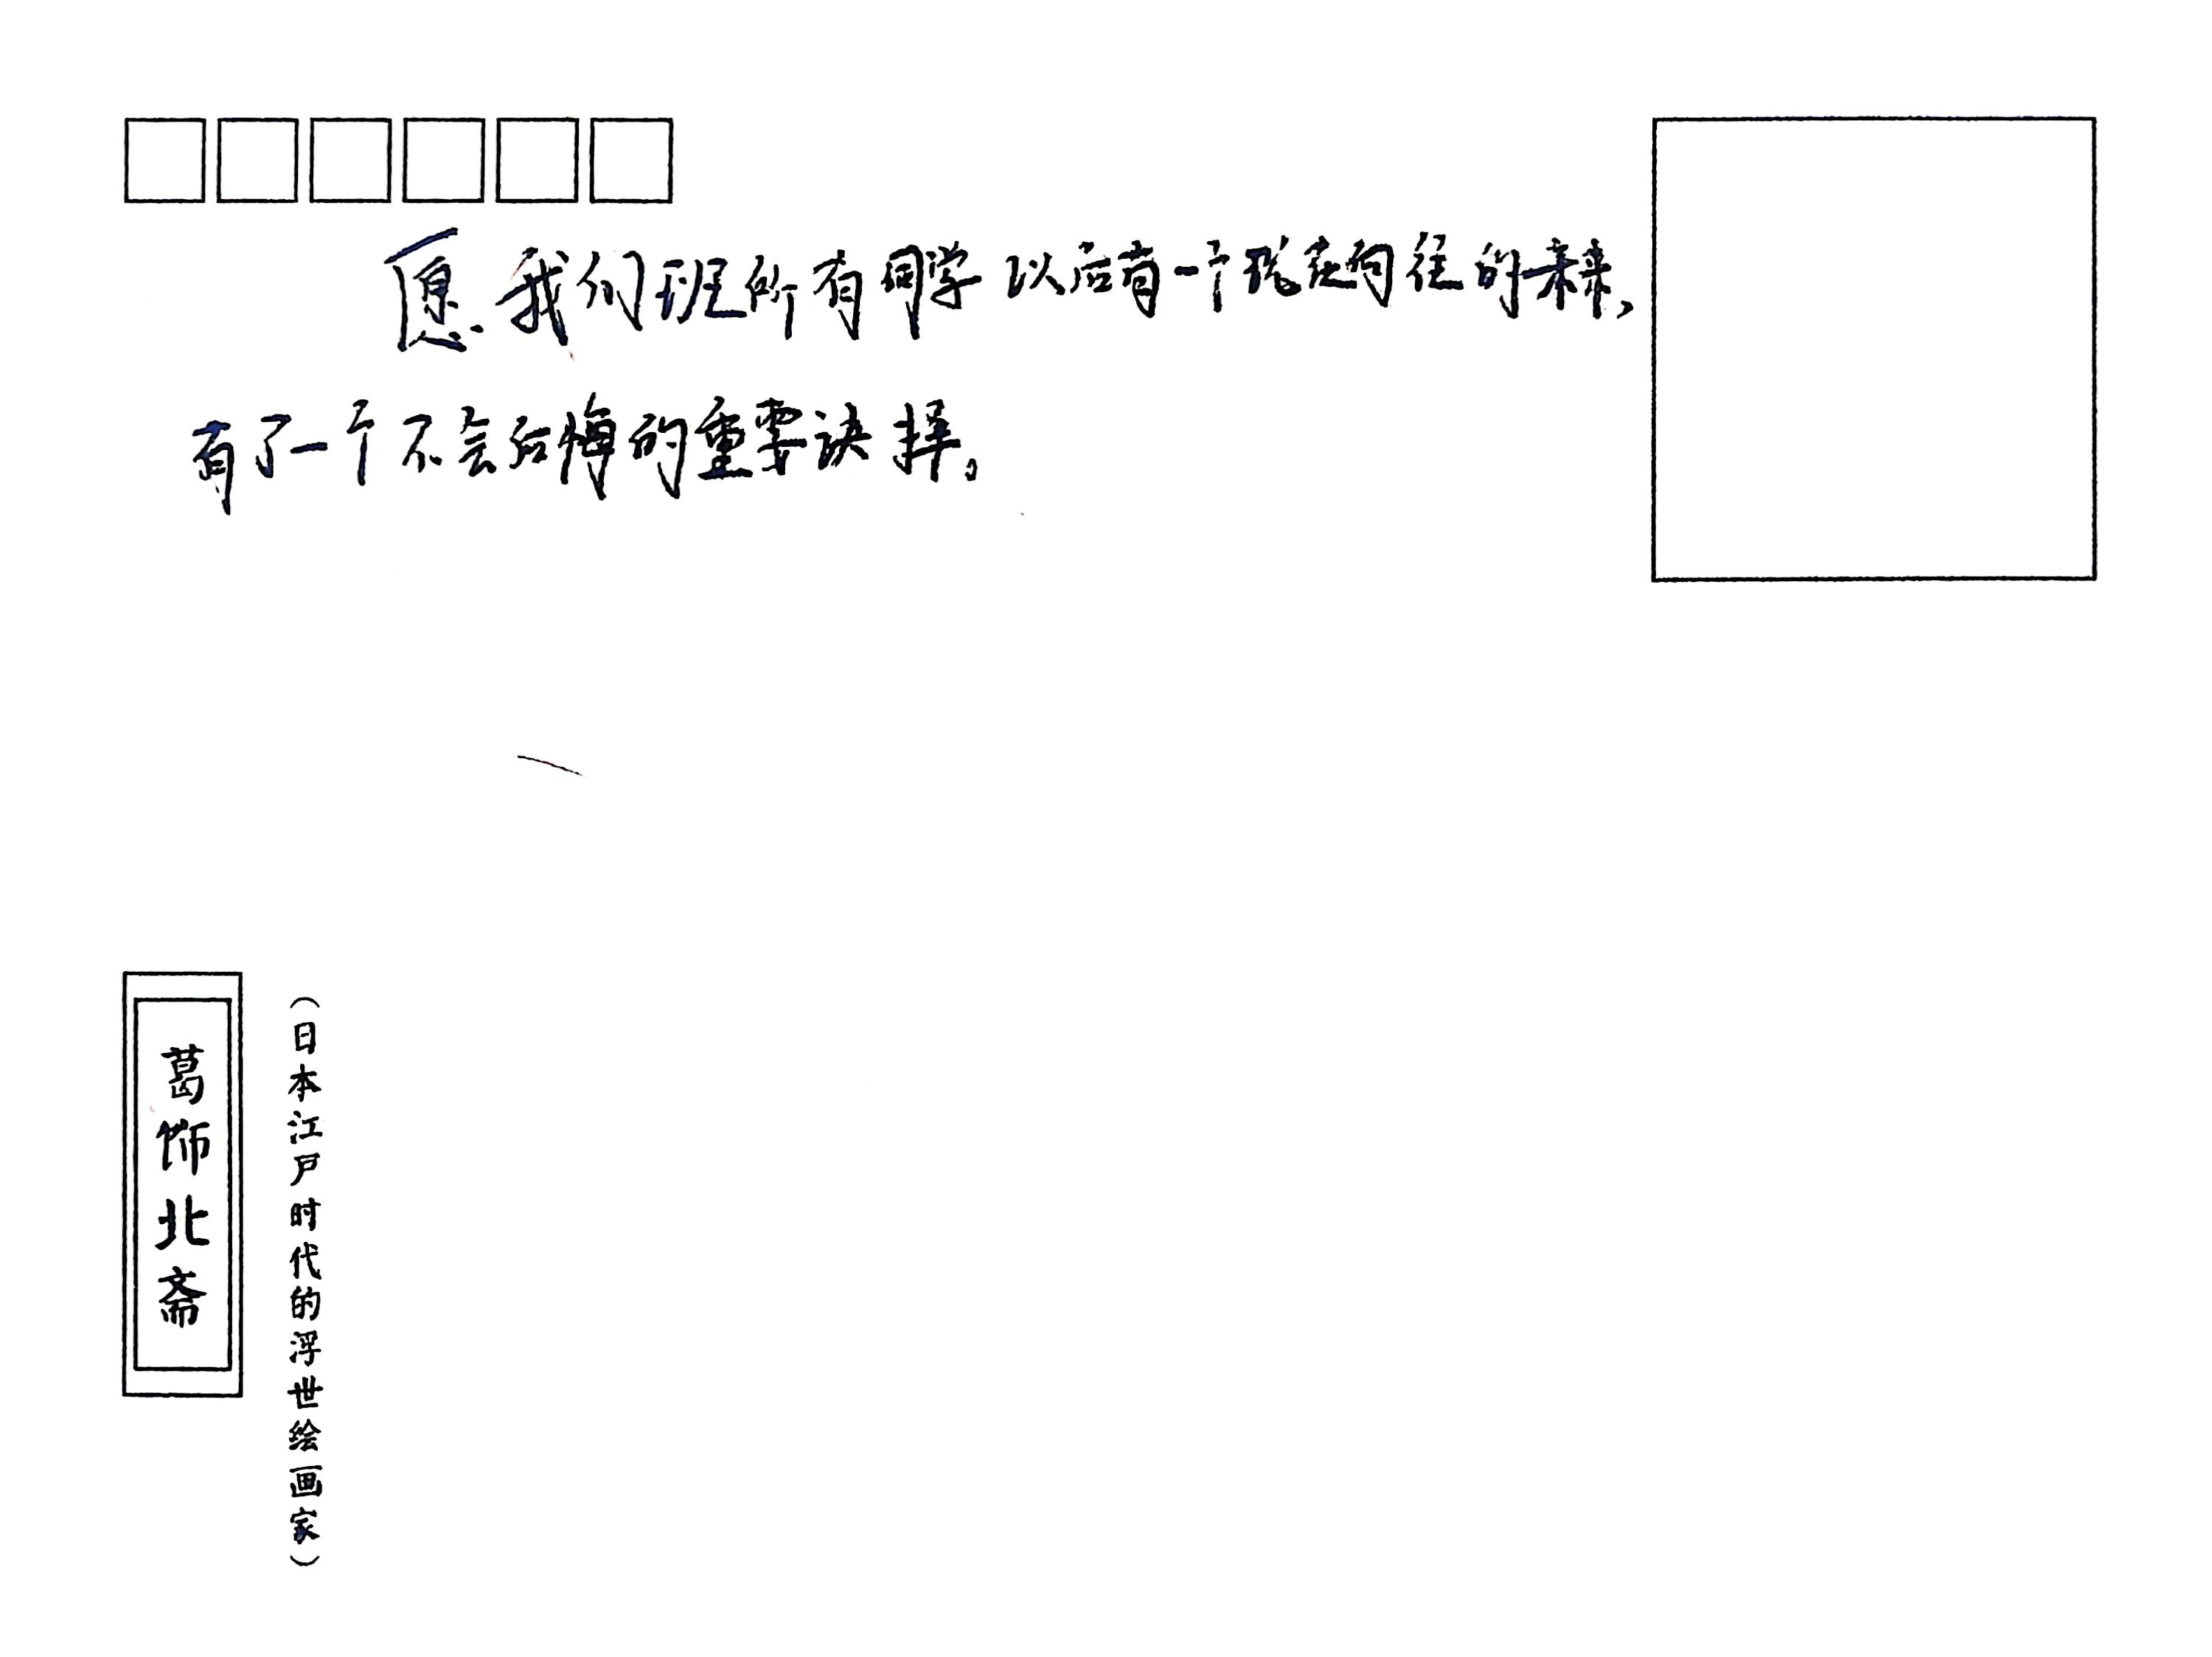 愿我们班所有同学以后有一个向往的未来,
有了一个不会后悔的重要诀择。
葛饰北斋
(日本江戸时代的浮世绘画家)